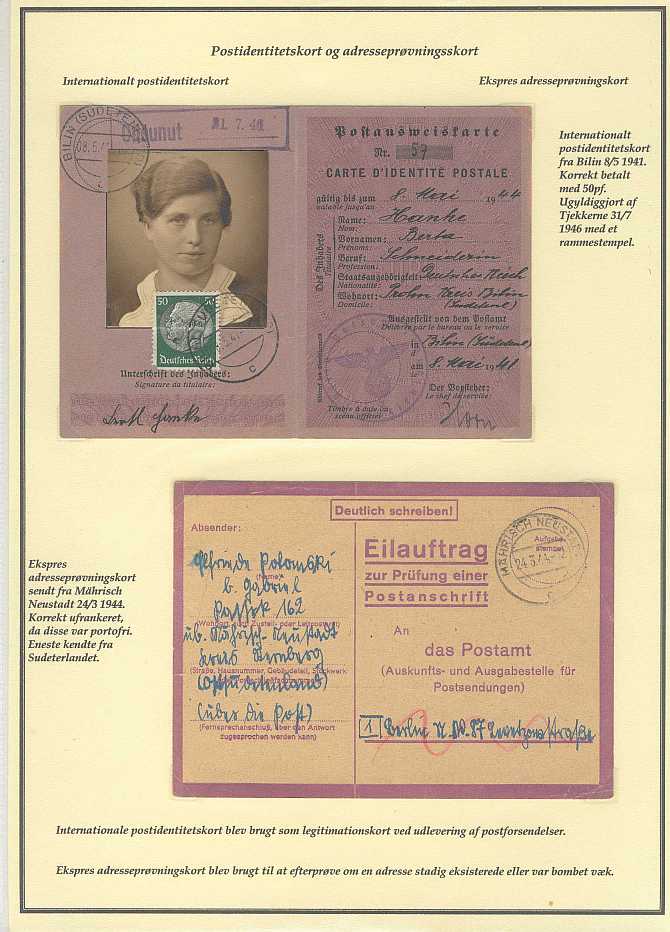 Postidentitetskort og adresseprøvningsskort
Internationalt postidentitetskort
Ekspres adresseprøvningskort
BILIN (SUDETEN
08.5.41
31. 7. 46
Postausweiskarte
Nr. 57
CARTE D'IDENTITÉ POSTALE
gültig bis zum 8. Mai 1944
valable jusqu'au
Des Inhabers
Titulaire
Name: Hanke
Nom:
Vornamen: Berta
Prénoms:
Beruf: Schneiderin
Profession:
Staatsangehörigkeit: Deutsches Reich
Nationalité:
Wohnort: Prohn Kreis Bilin
Domicile: (Sudetenl.)
Ausgestellt von dem Postamt
Délivrée par le bureau ou le service
in Bilin (Sudetenl.)
am 8. Mai 1941
Der Vorsteher:
Le chef de service:
Timbre à date ou
sceau officiel
50 50
Deutsches Reich
c
Unterschrift des Inhabers:
Signature du titulaire:
Hanke
Internationalt
postidentitetskort
fra Bilin 8/5 1941.
Korrekt betalt
med 50pf.
Ugyldiggjort af
Tjekkerne 31/7
1946 med et
rammestempel.
Ekspres
adresseprøvningskort
sendt fra Mährisch
Neustadt 24/3 1944.
Korrekt ufrankeret,
da disse var portofri.
Eneste kendte fra
Sudeterlandet.
Deutlich schreiben!
Absender:
(Name)
b. Gabriel
162
(Wohnort, auch Zustell- oder Leitpostamt)
üb. Mährisch-Neustadt
Kreis Sternberg
(Straße, Hausnummer, Gebäudeteil, Stockwerk
(Ostsudetenland)
(über die Post)
(Fernsprechanschluß, über den Antwort
zugesprochen werden kann)
Eilauftrag
zur Prüfung einer
Postanschrift
Aufgabe-
stempel
MÄHRISCH NEUSTA
24.3.4
c
An
das Postamt
(Auskunfts- und Ausgabestelle für
Postsendungen)
1 Berlin N.W. 87 Levetzowstraße
Internationale postidentitetskort blev brugt som legitimationskort ved udlevering af postforsendelser.
Ekspres adresseprøvningskort blev brugt til at efterprøve om en adresse stadig eksisterede eller var bombet væk.